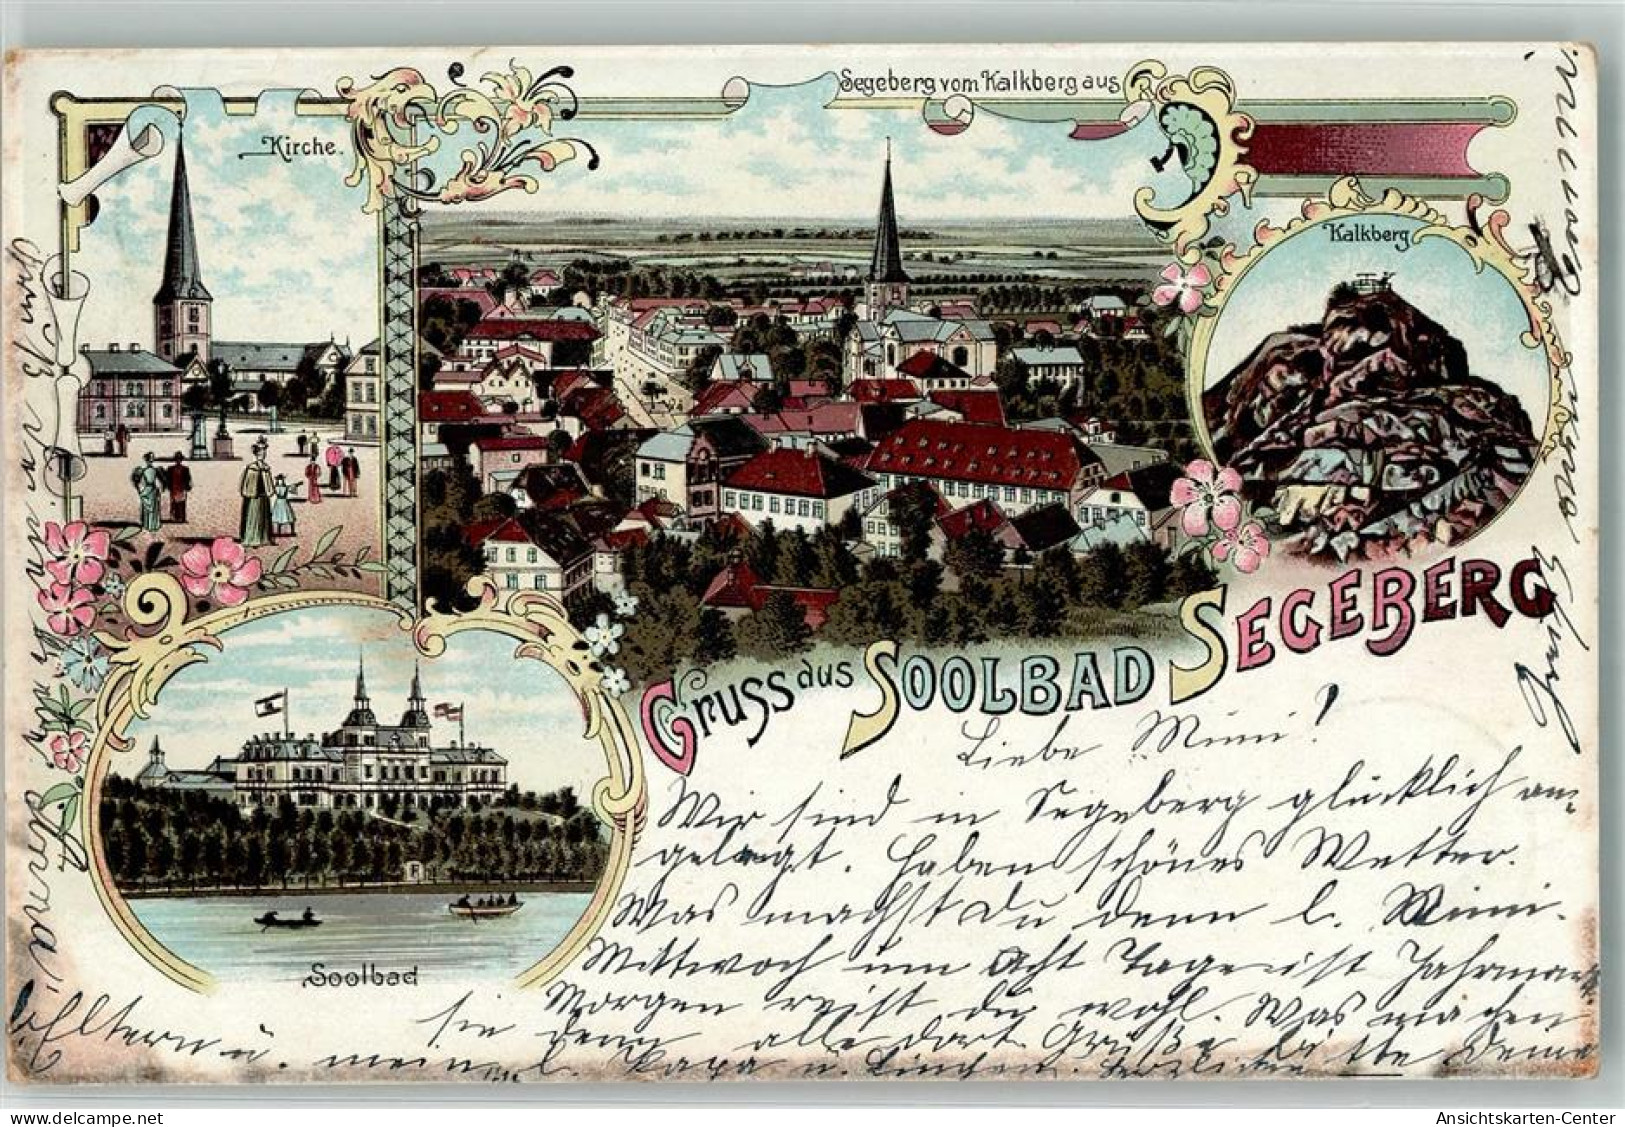 Segeberg vom Kalkberg aus
Kirche.
Kalkberg
Gruss aus SOOLBAD SEGEBERG
Soolbad
Liebe Mimi!
Wir sind in Segeberg glücklich an-
gelangt. Haben schönes Wetter.
Was machst Du denn l. Mimi.
Mittwoch um Acht Tage ist Jahrmarkt
Morgen reist du wohl. Was machen
sie denn alle dort Grüße bitte Deine
Eltern u. mein l. Papa u. Linchen. Herzliche
delcampe.net
Ansichtskarten-Center